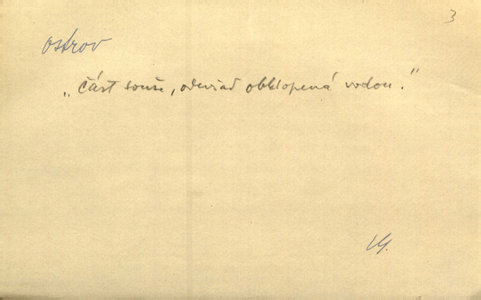 3
ostrov
„část souše, odevšad obklopená vodou.“